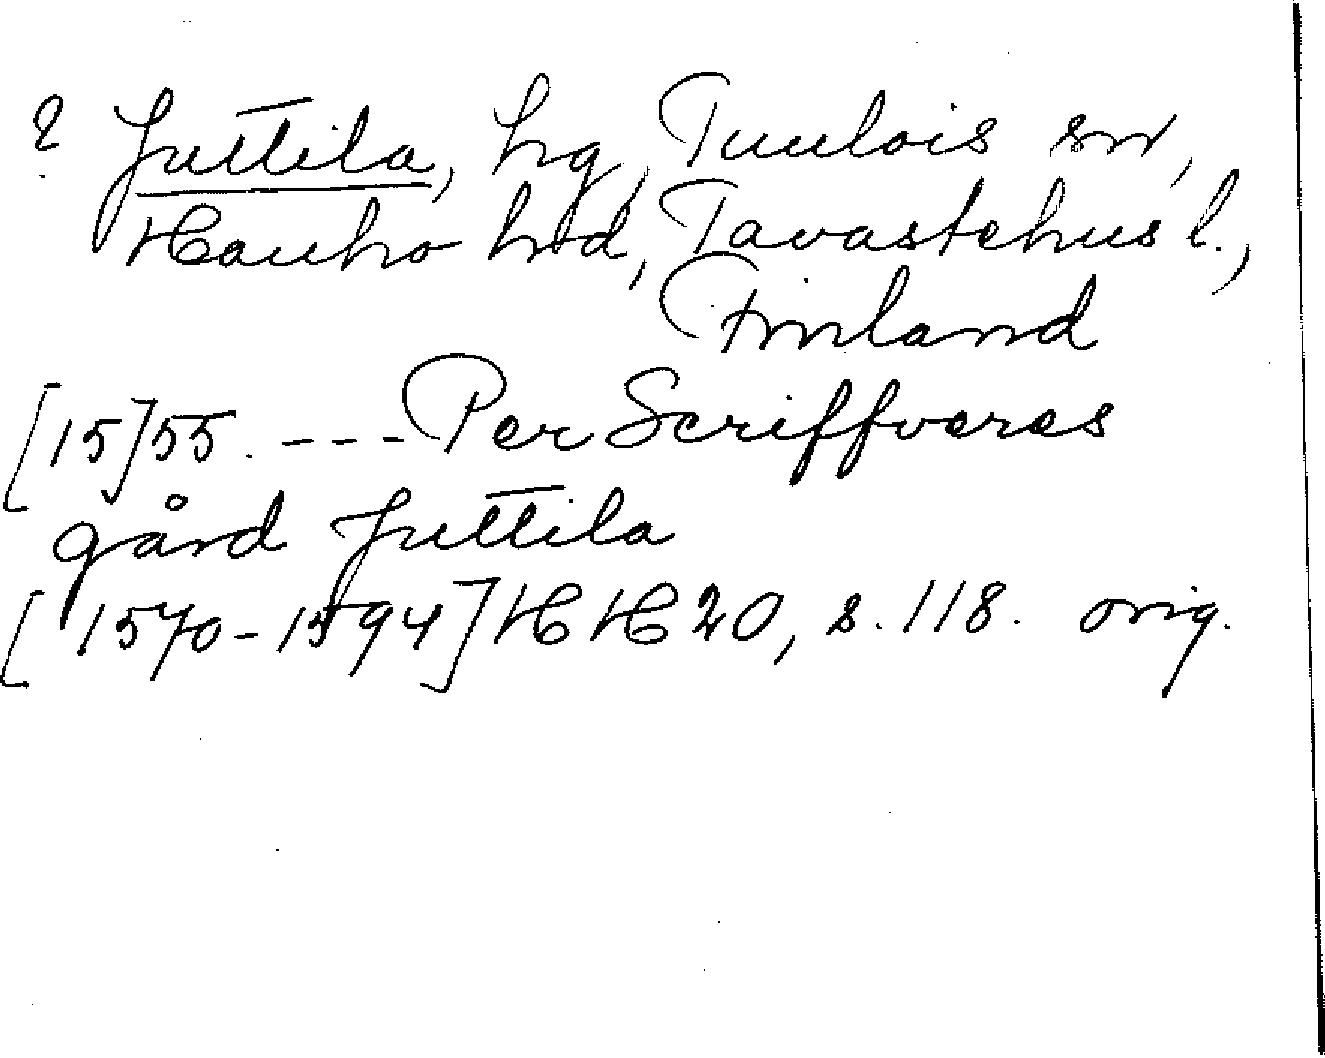 ? Juttila, hg, Tuulois sn,
Hauho hd, Tavastehus l.,
Finland
[15]55. --- Per Scriffveres
gård Juttila
[1570-1594] HH 20, s. 118. orig.